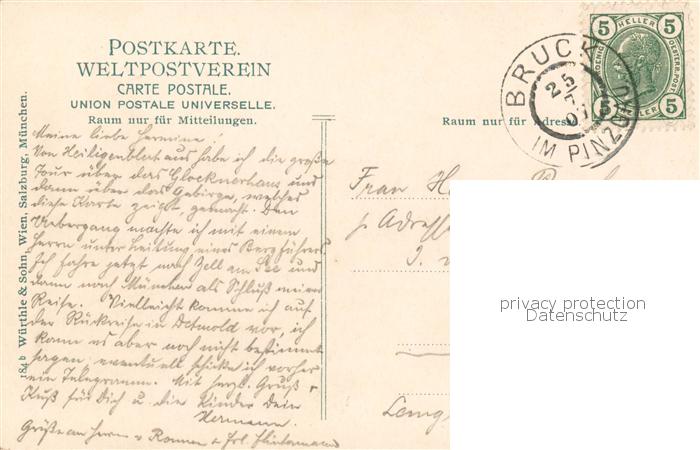 POSTKARTE.
WELTPOSTVEREIN
CARTE POSTALE.
UNION POSTALE UNIVERSELLE.
Raum nur für Mitteilungen.
Raum nur für Adresse
5 HELLER 5
5 5
BRUCK
25
7
07
IM PINZGAU
Meine liebe Hermine!
Von Heiligenblut aus habe ich die große
Tour über das Glocknerhaus und
dann über das Gebirge, welches
diese Karte zeigt, gemacht. Den
Uebergang machte ich mit einem
Herrn unter Leitung eines Bergführers.
Ich fahre jetzt nach Zell am See und
dann nach München als Schluß meiner
Reise. Vielleicht komme ich auf
der Rückreise in Detmold vor, ich
kann es aber noch nicht bestimmt
sagen, eventuell schicke ich vorher
ein Telegramm. Mit herzl. Gruß +
Kuß für Dich u. die Kinder Dein
Hermann.
Grüße an Herrn v + Frl.
Frau
p Adresse
Lemg
184 b Würthle & Sohn, Wien, Salzburg, München.
privacy protection
Datenschutz